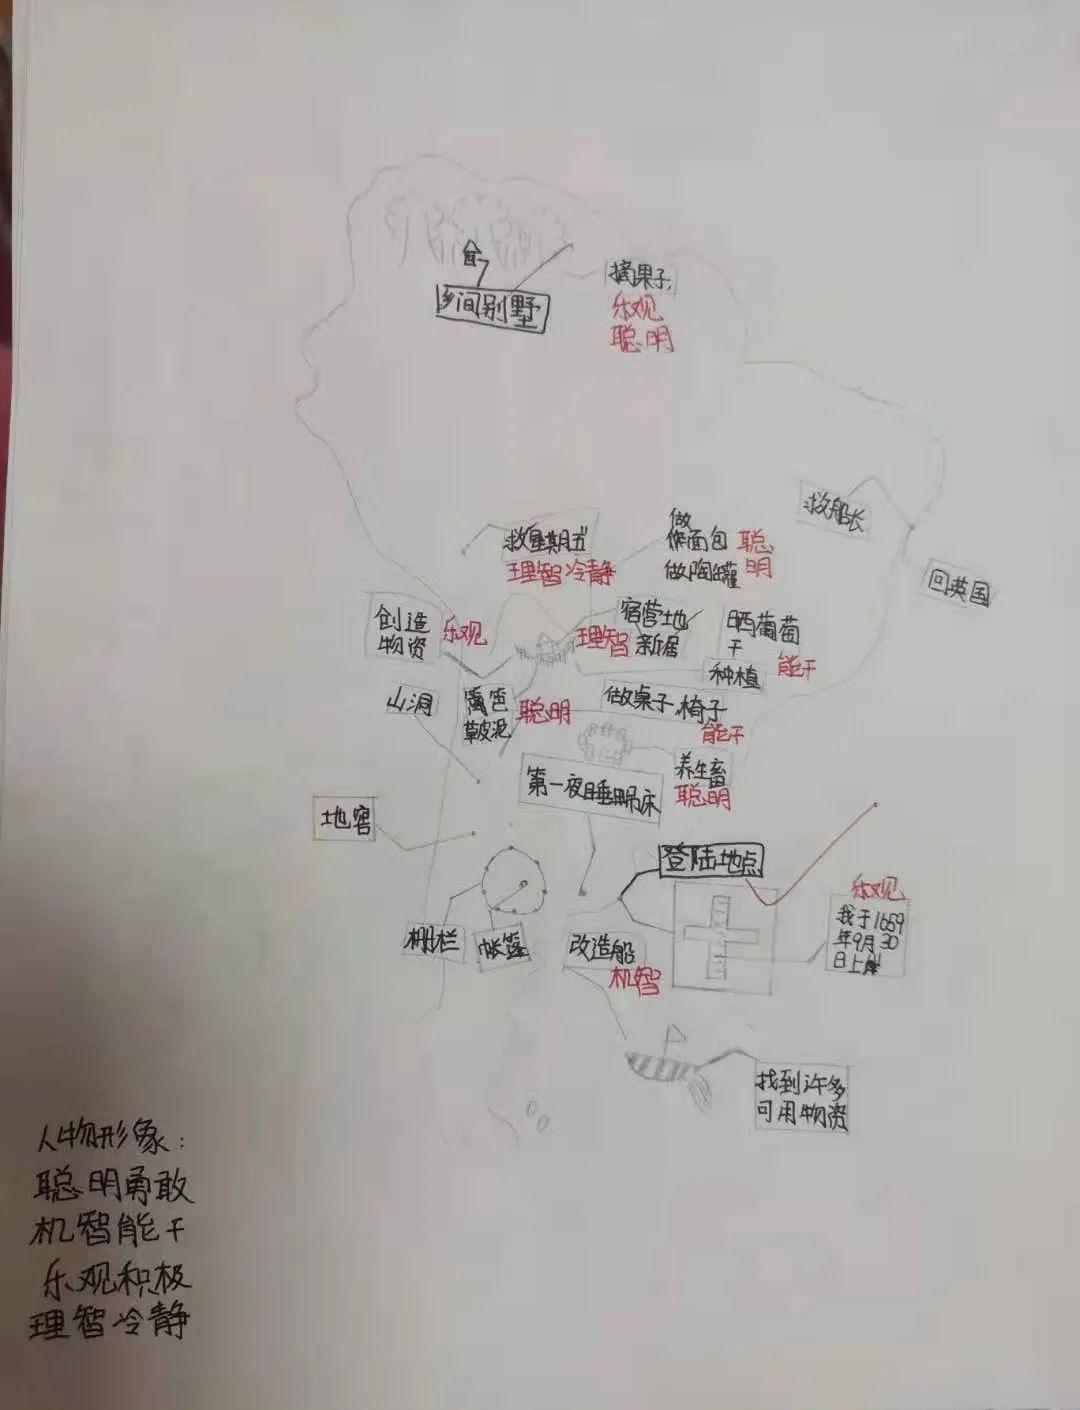 乡间别墅
摘果子
乐观
聪明
救船长
回英国
救星期五
理智冷静
做
作面包
做陶罐
聪
明
创造
物资
乐观
理智
宿营地
新居
晒葡萄
干
种植
能干
山洞
篱笆
草皮泥
聪明
做桌子、椅子
能干
第一夜睡吊床
养牲畜
聪明
地窖
登陆地点
栅栏
帐篷
改造船
机智
乐观
我于1659
年9月30
日上岸
找到许多
可用物资
人物形象：
聪明勇敢
机智能干
乐观积极
理智冷静